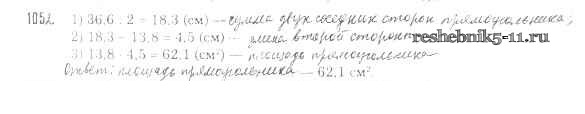 1052. 1) 36,6 : 2 = 18,3 (см) — сумма двух соседних сторон прямоугольника;
2) 18,3 - 13,8 = 4,5 (см) — длина второй стороны
www.reshebnik5-11.ru
3) 13,8 · 4,5 = 62,1 (см²) — площадь прямоугольника
Ответ: площадь прямоугольника — 62,1 см².